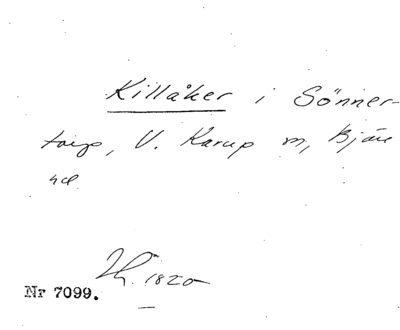 Killåker i Sönner-
torp, V. Karup sn, Bjäre
hd
1820
Nr 7099.